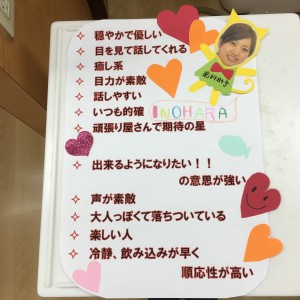 穏やかで優しい
目を見て話してくれる
癒し系
目力が素敵
話しやすい
いつも的確
INOHARA
頑張り屋さんで期待の星
出来るようになりたい！！
の意思が強い
声が素敵
大人っぽくて落ちついている
楽しい人
冷静、飲み込みが早く
順応性が高い